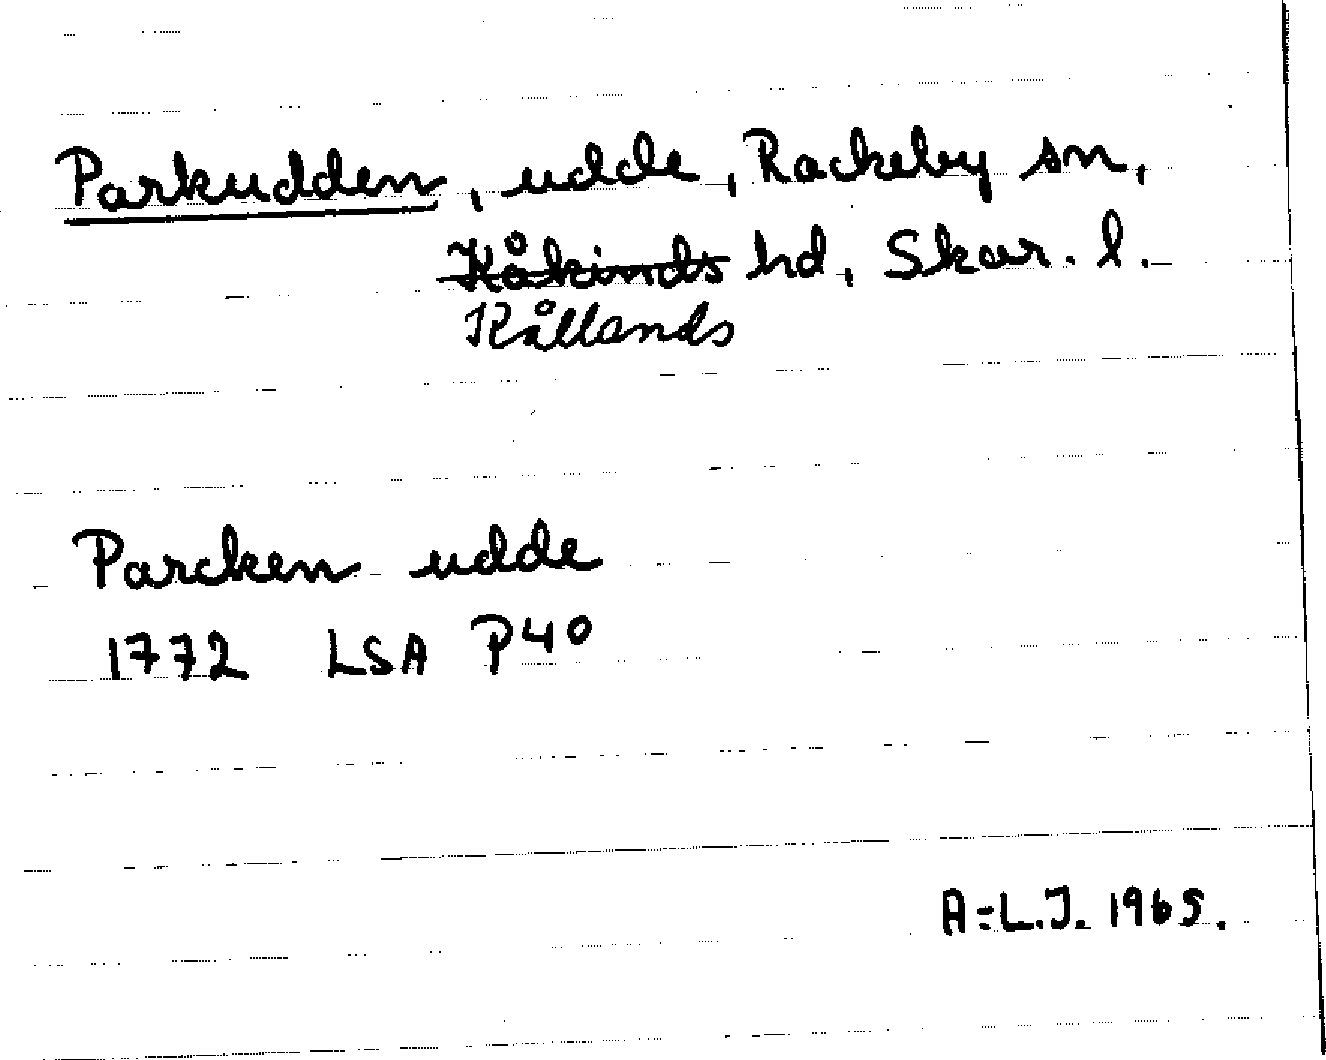 Parkudden, udde, Rackeby sn,
Kåkinds hd, Skar. l.
Kållands
Parcken udde
1772 LSA P40
A-L.J. 1965.